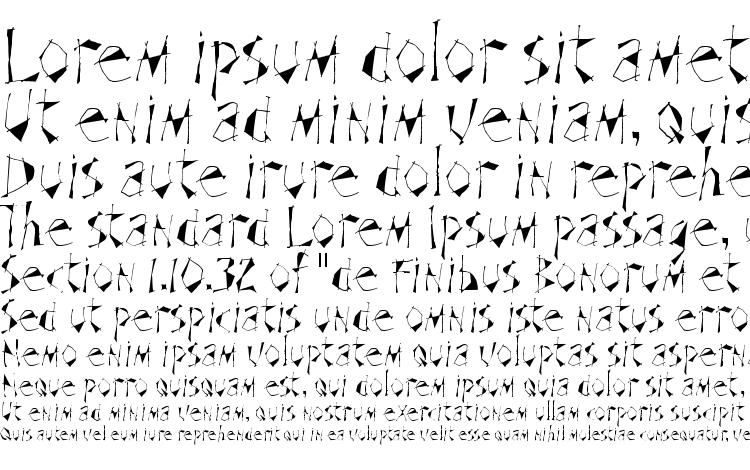 Lorem ipsum dolor sit amet
Ut enim ad minim veniam, quis
Duis aute irure dolor in reprehe
The standard Lorem Ipsum passage,
Section 1.10.32 of "de Finibus Bonorum et
Sed ut perspiciatis unde omnis iste natus erro
Nemo enim ipsam voluptatem quia voluptas sit aspern
Neque porro quisquam est, qui dolorem ipsum quia dolor sit amet,
Ut enim ad minima veniam, quis nostrum exercitationem ullam corporis suscipit
Quis autem vel eum iure reprehenderit qui in ea voluptate velit esse quam nihil molestiae consequatur, ve